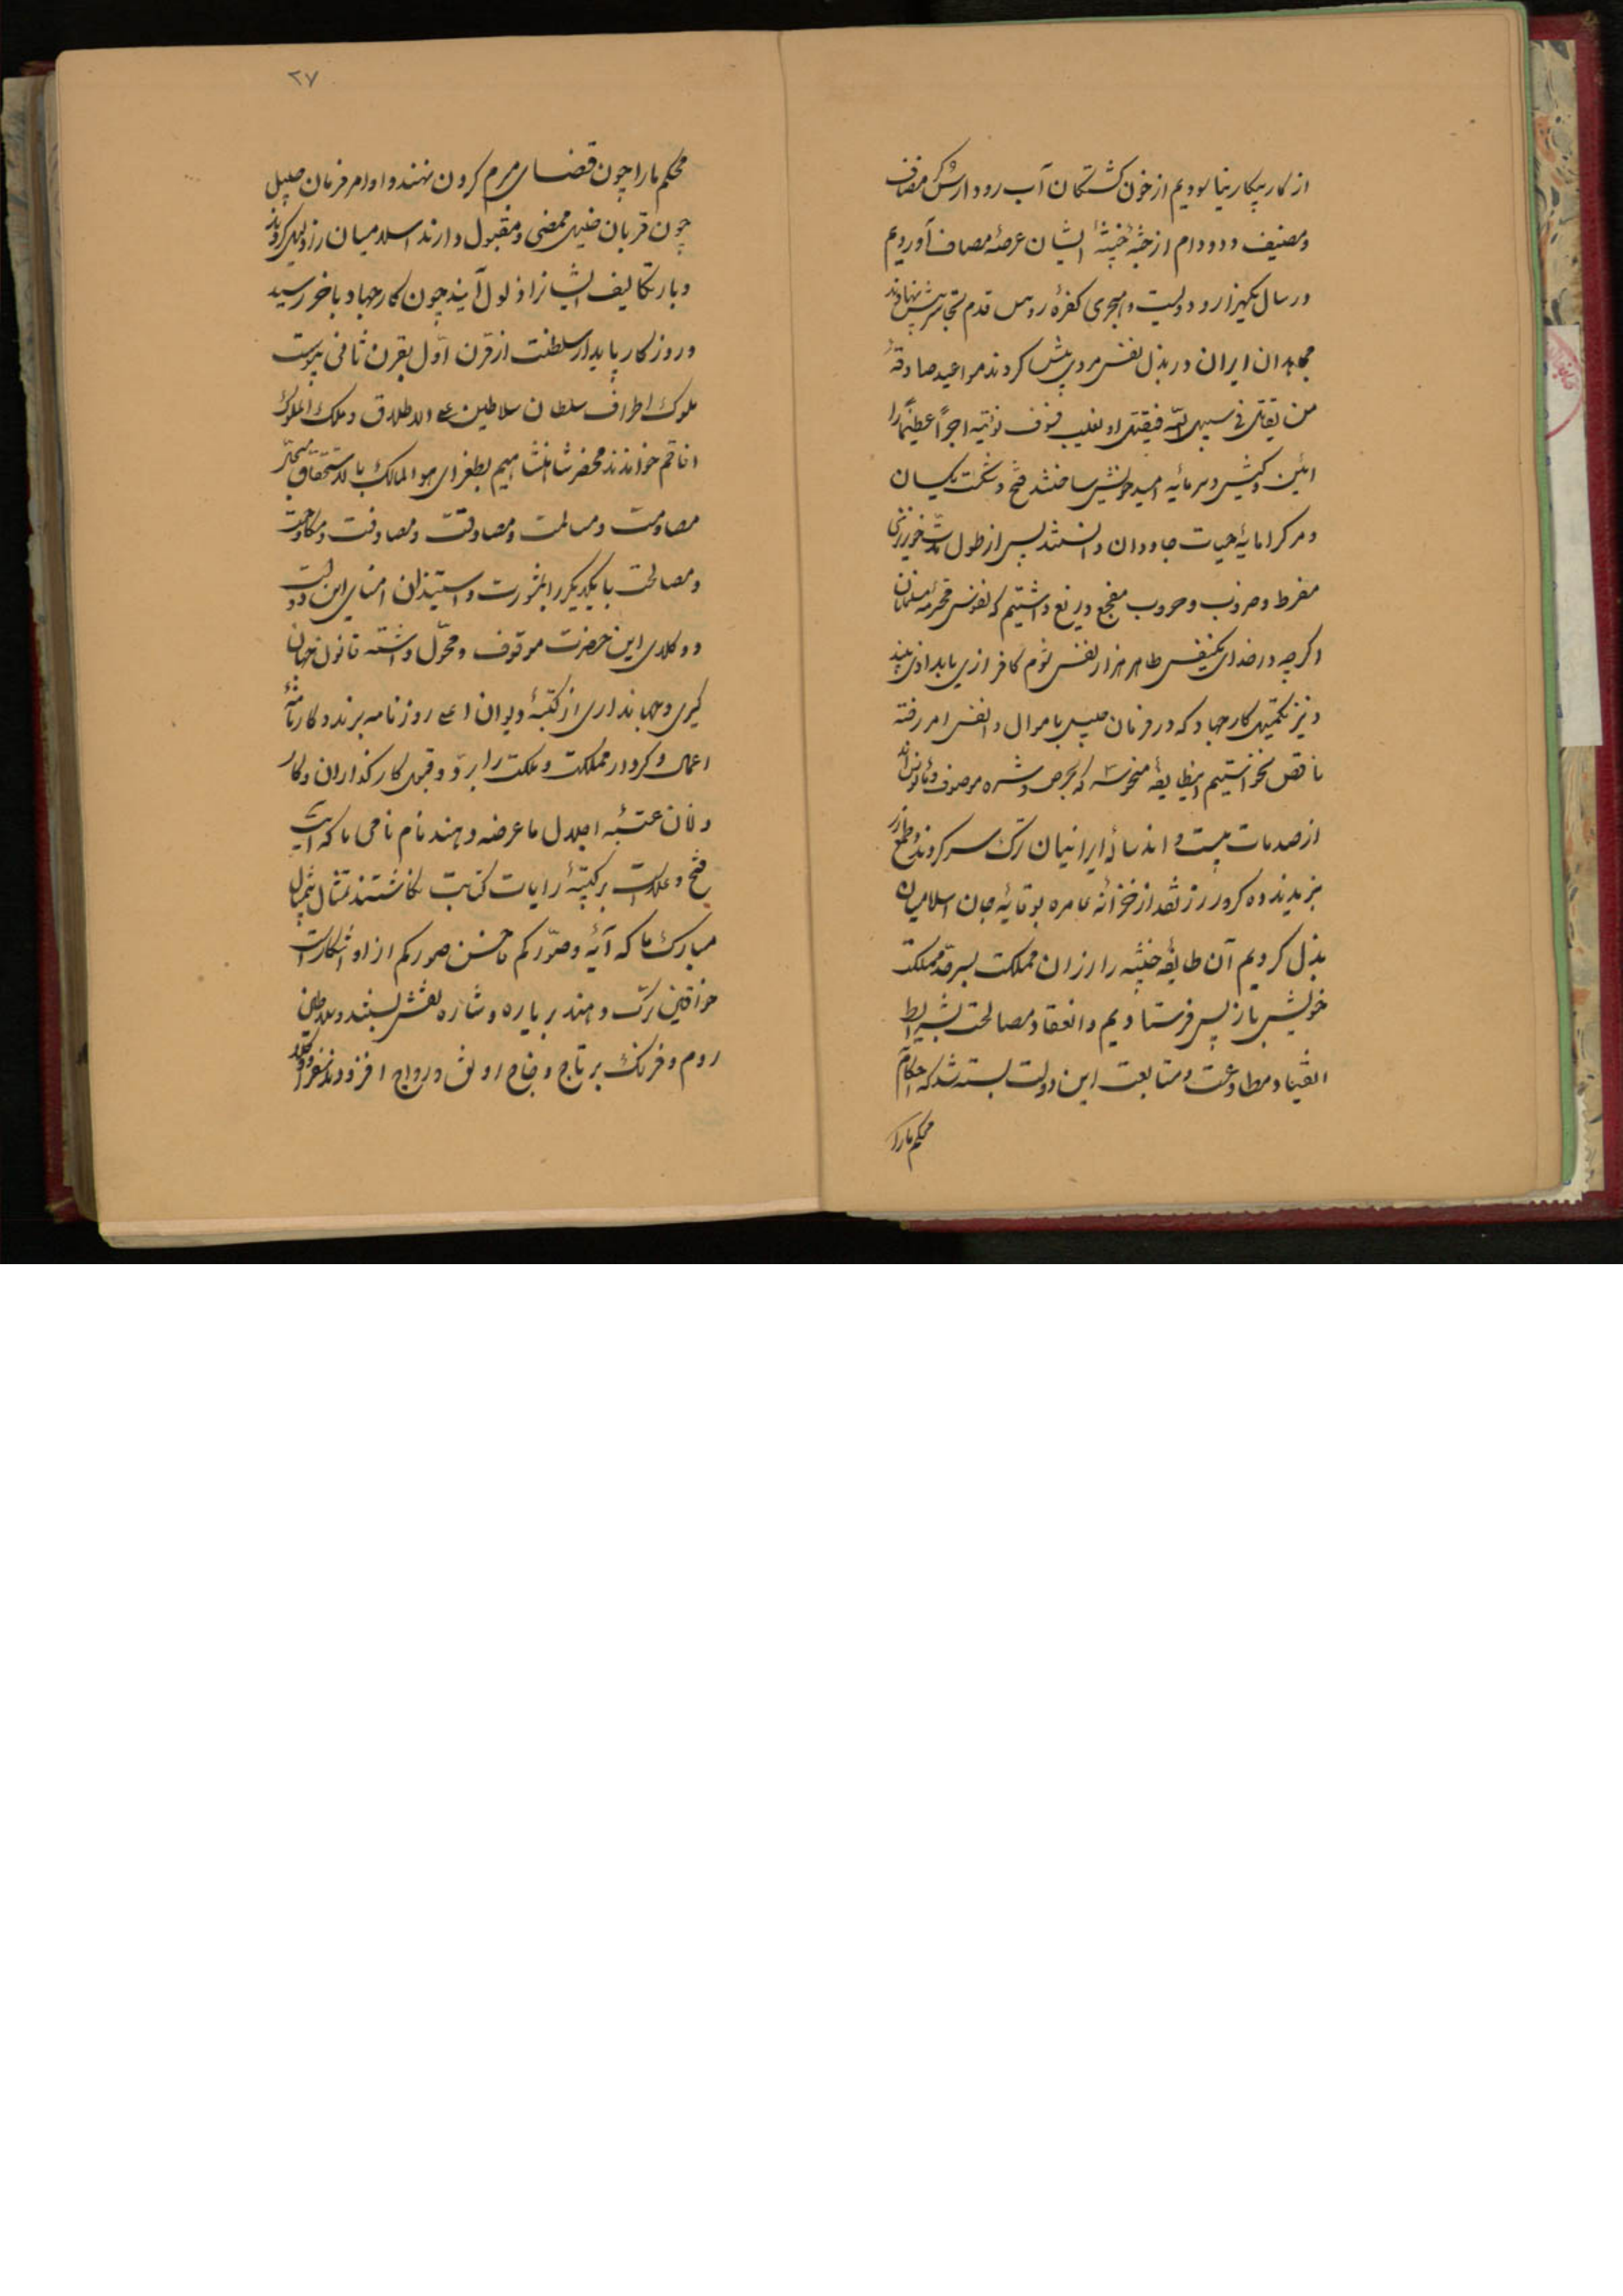 از کار پیکار نیاسودیم از خون کشتگان آب رود ارس کرد مضاف
ومصیف ودد ودام از جثهٔ خبیثهٔ ایشان عرصهٔ مصاف آوردیم
در سال یکهزار و دویست و هجری کفرهٔ روس قدم تجاسر پیش نهادند
مجاهدان ایران در بذل نفس مرد پیش کردند مواعید صادقهٔ
من یقاتل فی سبیل الله فیقتل او یغلب فسوف نؤتیه اجراً عظیماً را
آئین وکیش وسرمایهٔ امید خویش ساختند فتح وشکست یکسان
ومرک را مایهٔ حیات جاودان دانستند پس از طول مدت خونریزی
مفرط وضروب وحروب مفجع دریغ داشتیم که نفوس محترمهٔ مسلمانان
اکرچه در ازای یکنفس طاهر هزار نفس شوم کافر از پی باید اذی بیند
ونیز تکمیل کار جهاد که در فرمان جلیل باموال وانفس امر رفته
ناقص نخواستیم اینطایفهٔ منحوسه که بحرص وشره موصوف ومأنوس‌اند
از صدمات بیست واند سالهٔ ایرانیان ترک سر کردند وطمع از زر
نبریدند ده کرور زر نقد از خزانهٔ عامره بوقایهٔ جان اسلامیان
بذل کردیم آن طایفهٔ خبیثه را از ان مملکت بسرحد مملکت
خویش باز پس فرستادیم وانعقاد مصالحت بشرایط
انقیاد ومطاوعت ومتابعت این دولت بسته شد که احکام
محکم ما را
۲۷
محکم ما را چون قضای مبرم کردن نهند و اوامر فرمان جلیل
چون قربان خلیل ممضی ومقبول دارند اسلامیان را ذلیل کردند
وبار تکالیف ایشانرا ذلول آیند چون کار جهاد باخر رسید
وروزکار پایدار سلطنت از قرن اوّل بقرن ثانی پیوست
ملوک اطراف سلطان سلاطین علی الاطلاق وملک الملوک
افاقم خواندند محضر شاهنشاهیم بطغرای هو المالک بالاستحقاق مسجّل
مصاومت ومسالمت ومصادقت ومصادفت ومکاوحت
ومصالحت با یکدیکر را بمشورت واستیذان امنای این دولت
ووکلای این حضرت موقوف ومحوّل داشته قانون جهان
کیری وجهانداری از کتبهٔ دیوان اعلی روزنامه برند وکارنامهٔ
اعمال وکردار مملکت وملکت را بردّ وقبول کارکذاران وکار
دانان عتبهٔ اجلال ما عرضه دهند نام نامی ما که آیت
فتح وعلامت بر کتیبهٔ رایات کتایب نکاشتند تمثال بیمثال
مبارک ما که آیهٔ وصوّرکم فاحسن صورکم از او آشکار است
خواقین ترک وهند بر یاره وشاره نقش بستند وسلاطین
روم وفرنک بر تاج وخاج رونق ورواج افزودند